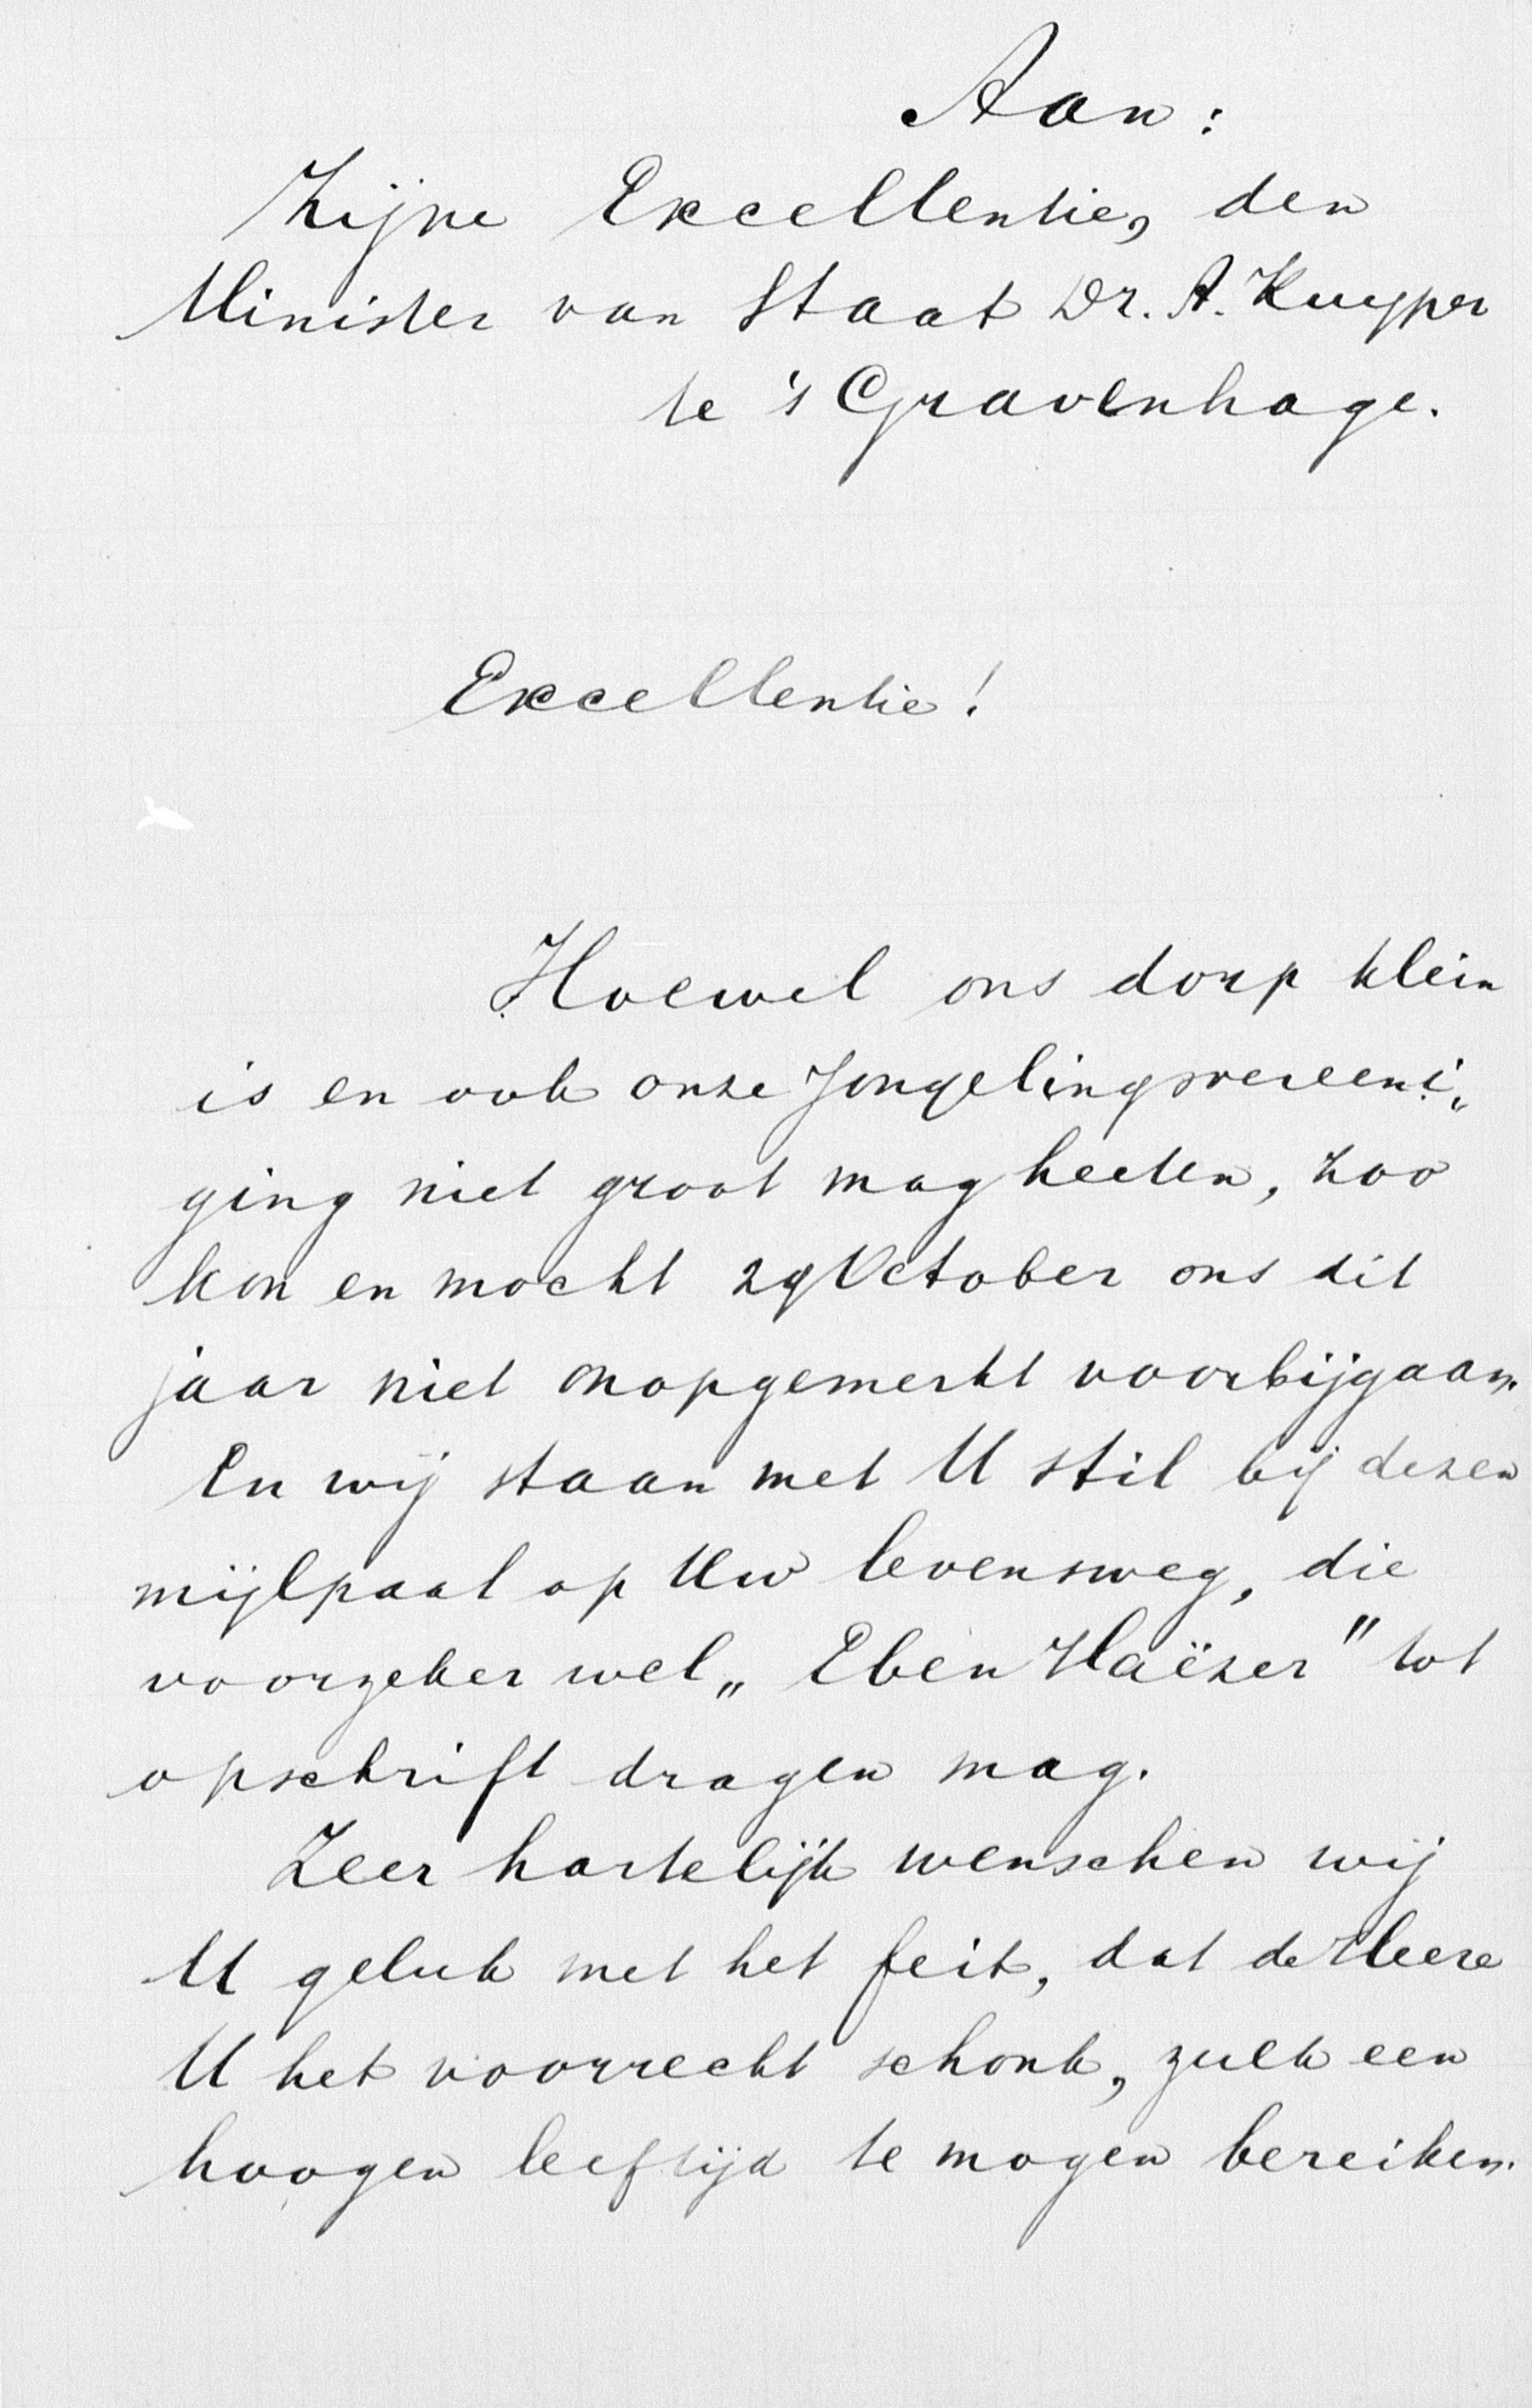 Aan:
Zijne Excellentie, den
Minister van Staat Dr. A. Kuyper
te 's Gravenhage.
Excellentie!
Hoewel ons dorp klein
is en ook onze Jongelingsvereeni„
ging niet groot mag heeten, zoo
kon en mocht 29 October ons dit
jaar niet onopgemerkt voorbijgaan.
En wij staan met U stil bij dezen
mijlpaal op Uw levensweg, die
voorzeker wel „Eben Haëzer" tot
opschrift dragen mag.
Zeer hartelijk wenschen wij
U geluk met het feit, dat de Heere
U het voorrecht schonk, zulk een
hoogen leeftijd te mogen bereiken.